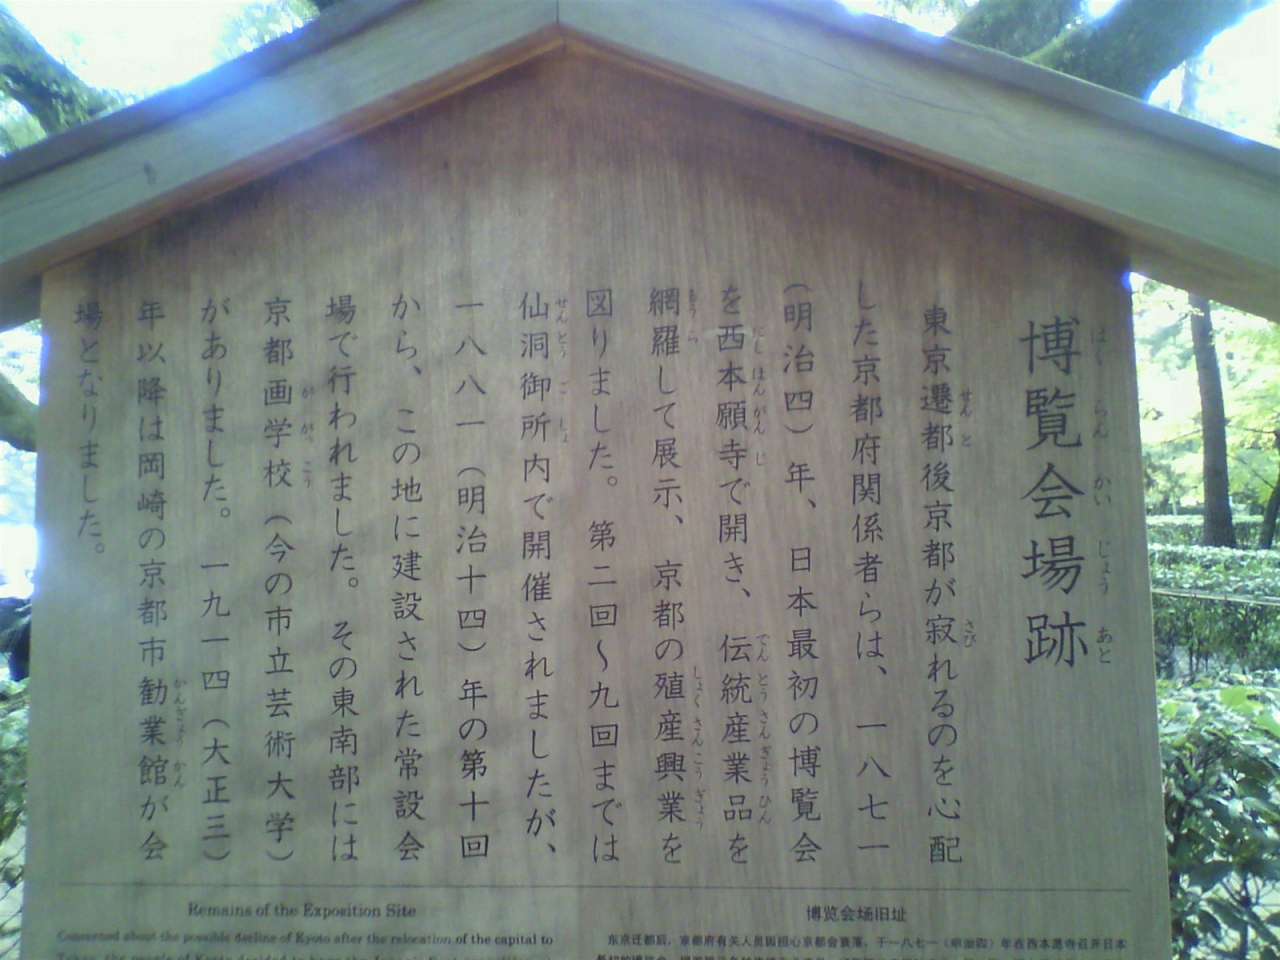 博覧会場跡
はくらんかいじょうあと
東京遷都後京都が寂れるのを心配
せんと
さび
した京都府関係者らは、一八七一
(明治四)年、日本最初の博覧会
を西本願寺で開き、伝統産業品を
にしほんがんじ
でんとうさんぎょうひん
網羅して展示、京都の殖産興業を
もうら
しょくさんこうぎょう
図りました。第二回～九回までは
仙洞御所内で開催されましたが、
せんとうごしょ
一八八一(明治十四)年の第十回
から、この地に建設された常設会
場で行われました。その東南部には
京都画学校(今の市立芸術大学)
ががっこう
がありました。一九一四(大正三)
年以降は岡崎の京都市勧業館が会
かんぎょうかん
場となりました。
Remains of the Exposition Site
Concerned about the possible decline of Kyoto after the relocation of the capital to
博览会场旧址
东京迁都后，京都府有关人员因担心京都会衰落，于一八七一（明治四）年在西本愿寺召开日本